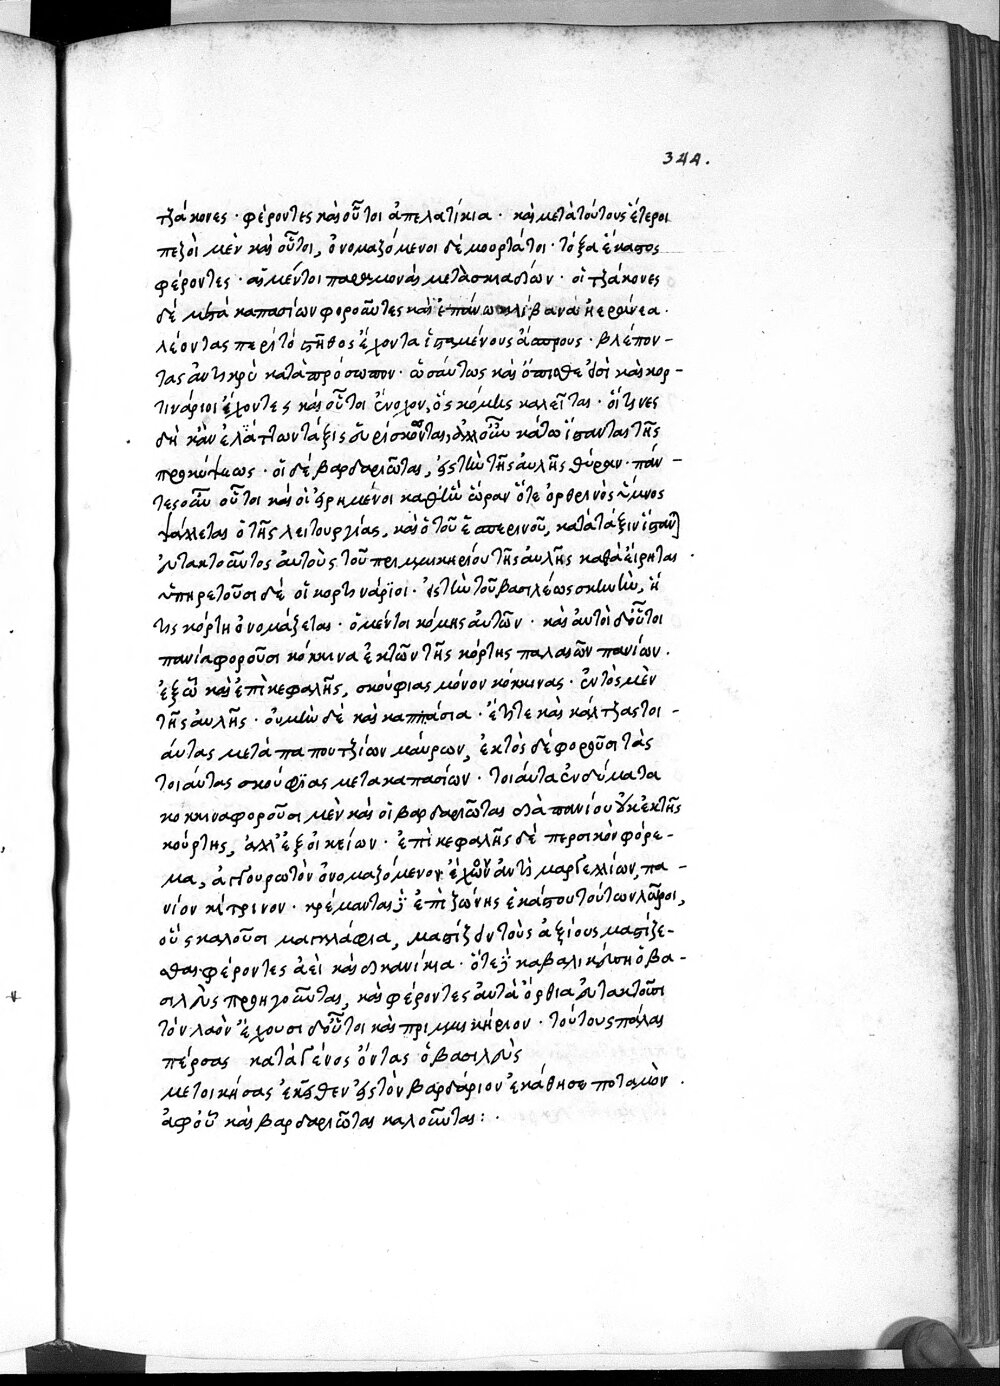 344.
τζάκονες· φέροντες καὶ οὗτοι ἀπελατίκια· καὶ μετὰ τούτους ἕτεροι
πεζοὶ μὲν καὶ οὗτοι, ὀνομαζόμενοι δὲ μορτάτοι· τόξα ἕκαστος
φέροντες· αἱ μέντοι παραμοναὶ μετὰ σκιαδίων· οἱ τζάκονες
δὲ μετὰ καπασίων φοροῦντες καὶ ἐπάνω κλίβανα ἠεράνεα.
λέοντας περὶ τὸ στῆθος ἔχοντα ἱσταμένους ἄσπρους· βλέπον-
τας ἀντικρὺ κατὰ πρόσωπον· ὡσαύτως καὶ ὄπισθε εἰσὶ καὶ κορ-
τινάριοι ἔχοντες καὶ οὗτοι ἔνοχον, ὃς κόμης καλεῖται· οἵτινες
δὴ κἂν ἐλάττων τάξις εὑρίσκονται, ἀλλ' οὖν κάτω ἵστανται τῆς
προκύψεως· οἱ δὲ βαρδαριῶται, εἰς τὴν τῆς αὐλῆς θύραν· πάν-
τες οὖν οὗτοι καὶ οἱ εἰρημένοι καθ' ἣν ὥραν ὅτε ὀρθρινὸς ὕμνος
ψάλλεται ὁ τῆς λειτουργίας, καὶ ὁ τοῦ ἑσπερινοῦ, κατὰ τάξιν ἵσταντ
εὐτακτοῦντος αὐτοὺς τοῦ πριμμικηρίου τῆς αὐλῆς καθὰ εἴρηται·
ὑπηρετοῦσι δὲ οἱ κορτινάριοι· εἰς τὴν τοῦ βασιλέως σκηνὴν, ἥ
τις κόρτη ὀνομάζεται· ὁ μέντοι κόμης αὐτῶν· καὶ αὐτοὶ δ' οὗτοι
πανία φοροῦσι κόκκινα ἐκ τῶν τῆς κόρτης παλαιῶν πανίων.
ἐξ ὧν καὶ ἐπὶ κεφαλῆς, σκούφιας μόνον κόκκινας· ἐντὸς μὲν
τῆς αὐλῆς· οὐ μὴν δὲ καὶ καπάσια· ἔτι τε καὶ κάλτζας τοι-
αύτας μετὰ παπουτζίων μαύρων, ἐκτὸς δὲ φοροῦσι τὰς
τοιαύτας σκούφιας μετὰ καπασίων· τοιαῦτα ἐνδύματα
κόκκινα φοροῦσι μὲν καὶ οἱ βαρδαριῶται διὰ πανίου οὐκ ἐκ τῆς
κούρτης, ἀλλ' ἐξ οἰκείων· ἐπὶ κεφαλῆς δὲ περσικὸν φόρε-
μα, ἀγγουρωτὸν ὀνομαζόμενον ἔχων ἀντὶ μαργελλίων, πα-
νίον κίτρινον· κρέμανται δὲ ἐπὶ ζώνης ἑκάστου τούτων λῶροι,
οὓς καλοῦσι μαγκλάβια, μαστίζειν τοὺς ἀξίους μαστίζε-
σθαι φέροντες ἀεὶ καὶ δικανίκια· ὅτε δὲ καβαλικεύση ὁ βα-
σιλεὺς προηγοῦνται, καὶ φέροντες αὐτὰ ὄρθια εὐτακτοῦσι
τὸν λαὸν ἔχουσι δ' οὗτοι καὶ πριμμικήριον· τούτους πάλαι
πέρσας κατὰ γένος ὄντας ὁ βασιλεὺς
μετοικήσας ἐκεῖθεν εἰς τὸν βαρδάριον ἐκάθησε ποταμὸν·
ἀφ' οὗ καὶ βαρδαριῶται καλοῦνται:·